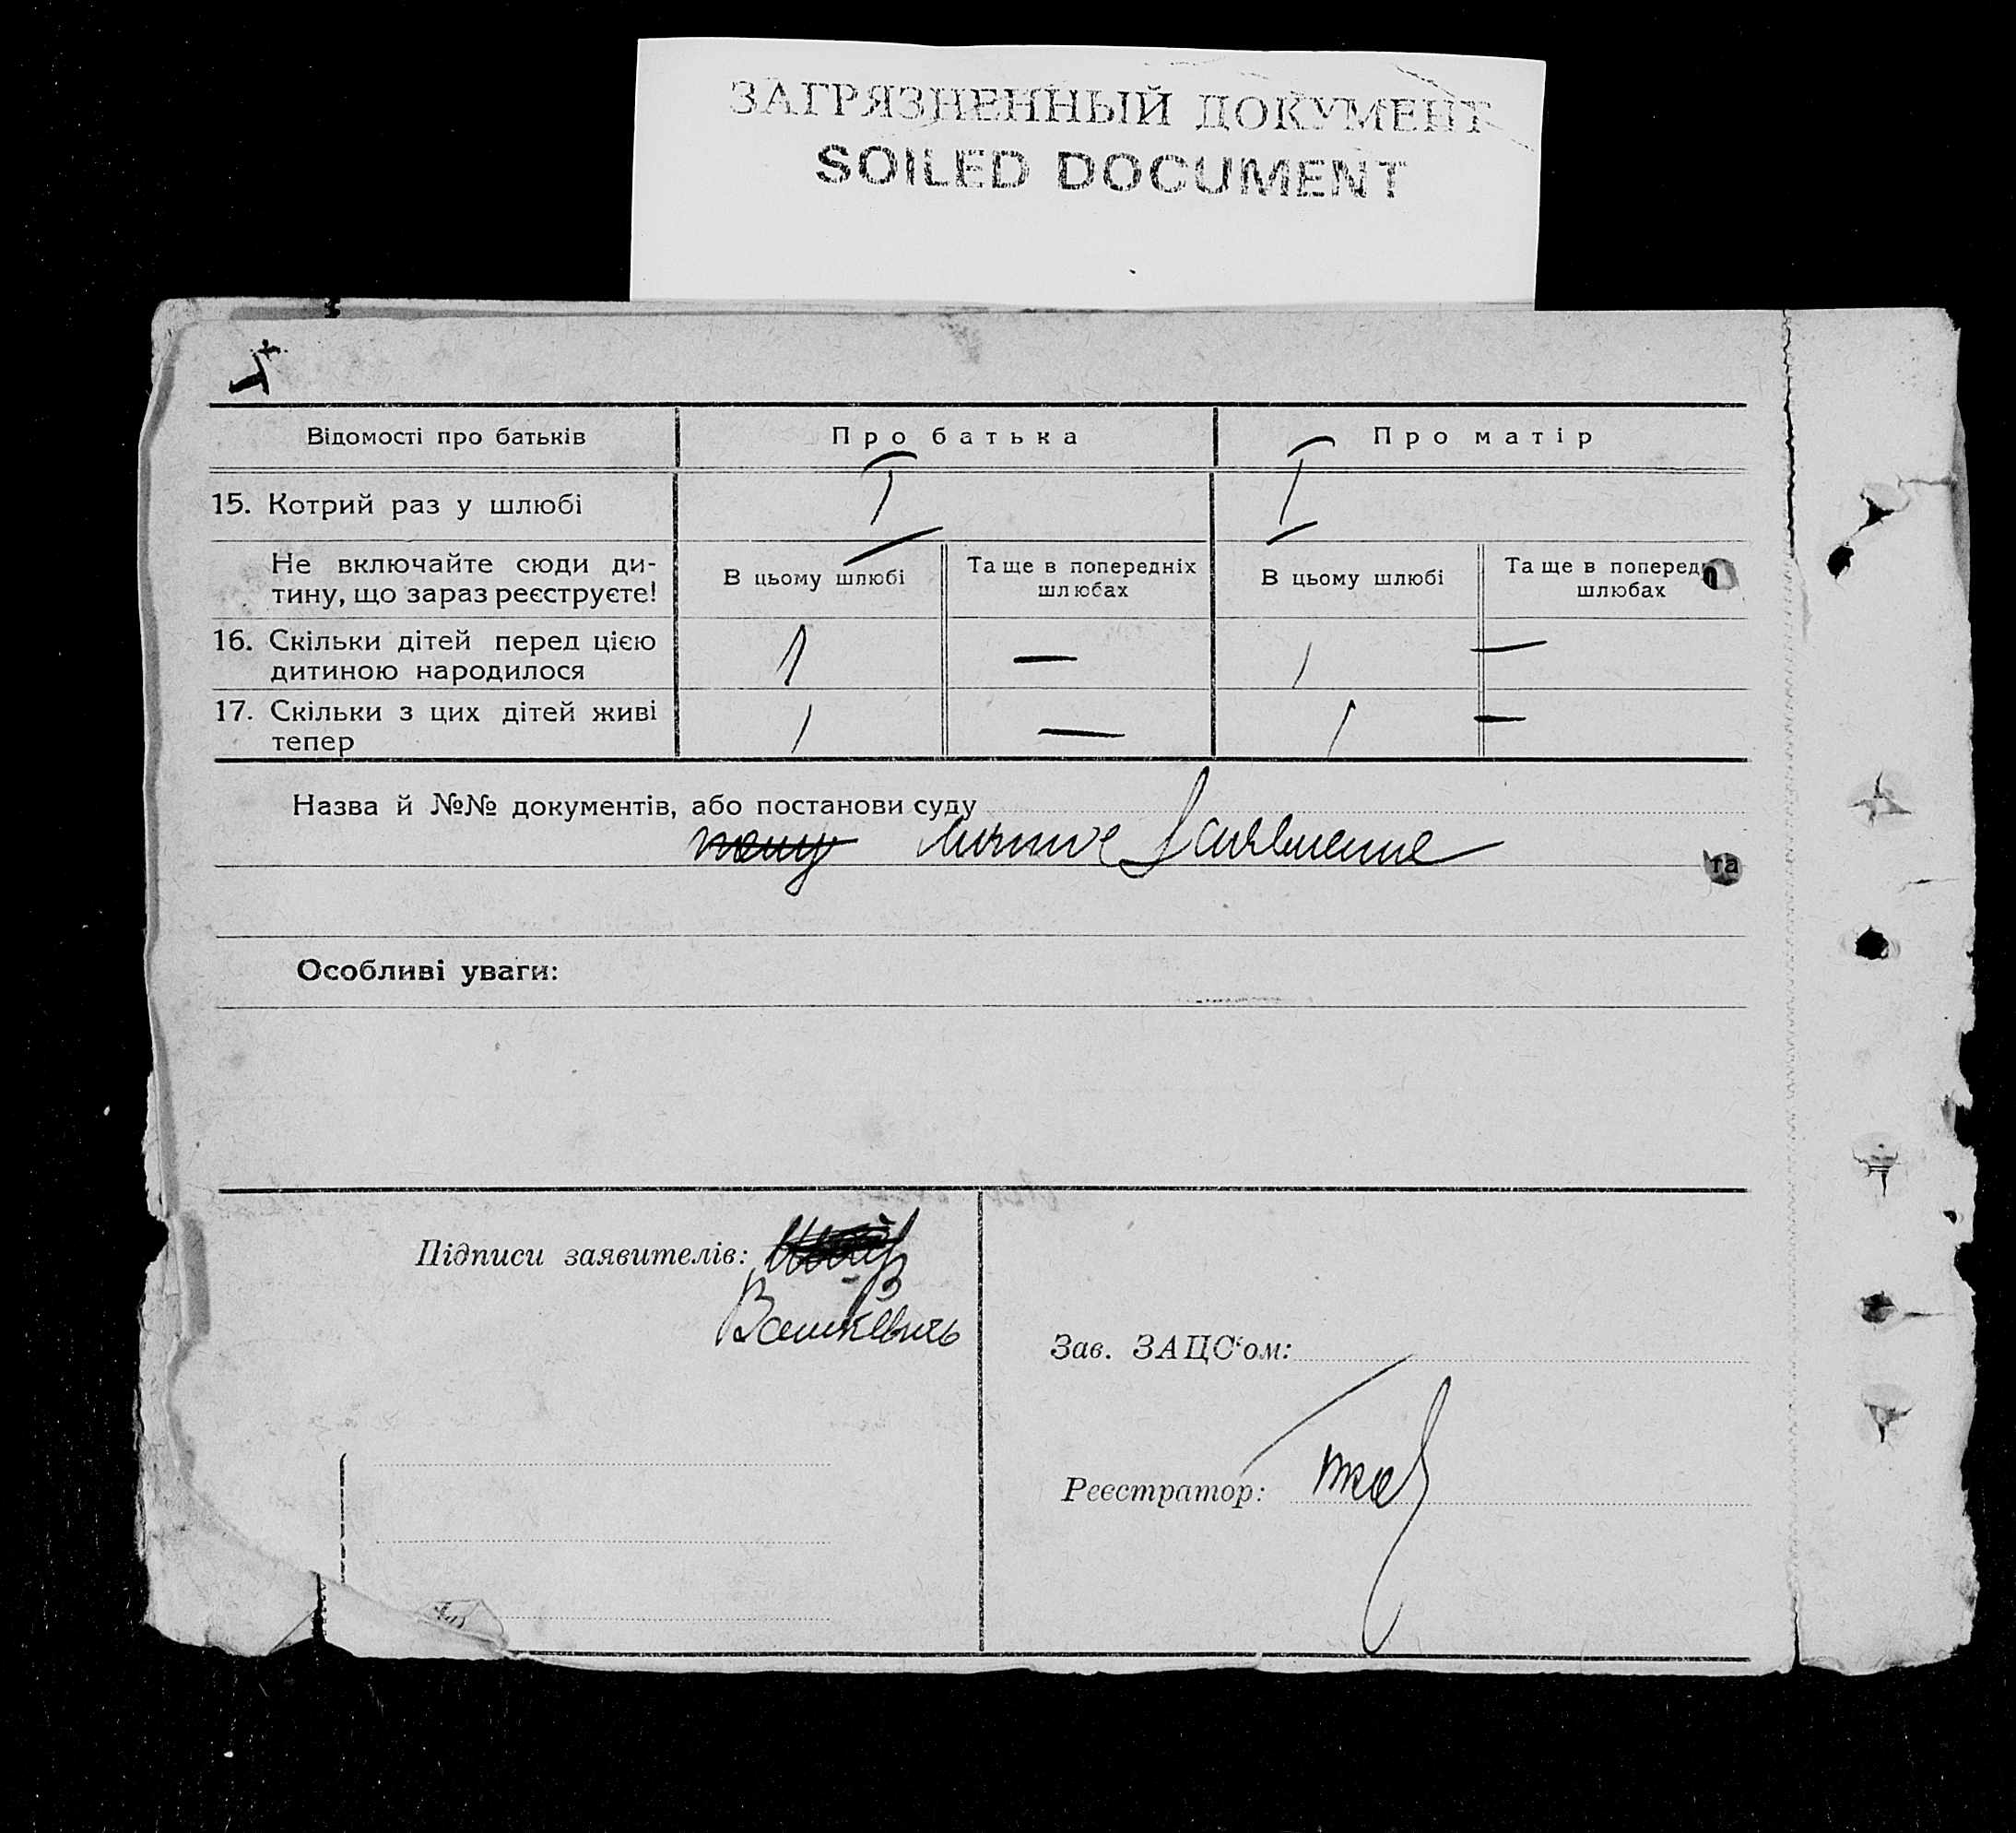 ЗАГРЯЗНЕННЫЙ ДОКУМЕНТ
SOILED DOCUMENT
Відомості про батьків Про батька Про матір
15. Котрий раз у шлюбі I I
Не включайте сюди ди-
тину, що зараз реєструєте!
В цьому шлюбі Та ще в попередніх
шлюбах
В цьому шлюбі Та ще в поперед
шлюбах
16. Скільки дітей перед цією
дитиною народилося 1 — 1 —
17. Скільки з цих дітей живі
тепер 1 — 1 —
Назва й №№ документів, або постанови суду
личное заявление та
Особливі уваги:
Підписи заявителів:
Вашкевичь
Зав. ЗАЦС‘ом:
Реєстратор: